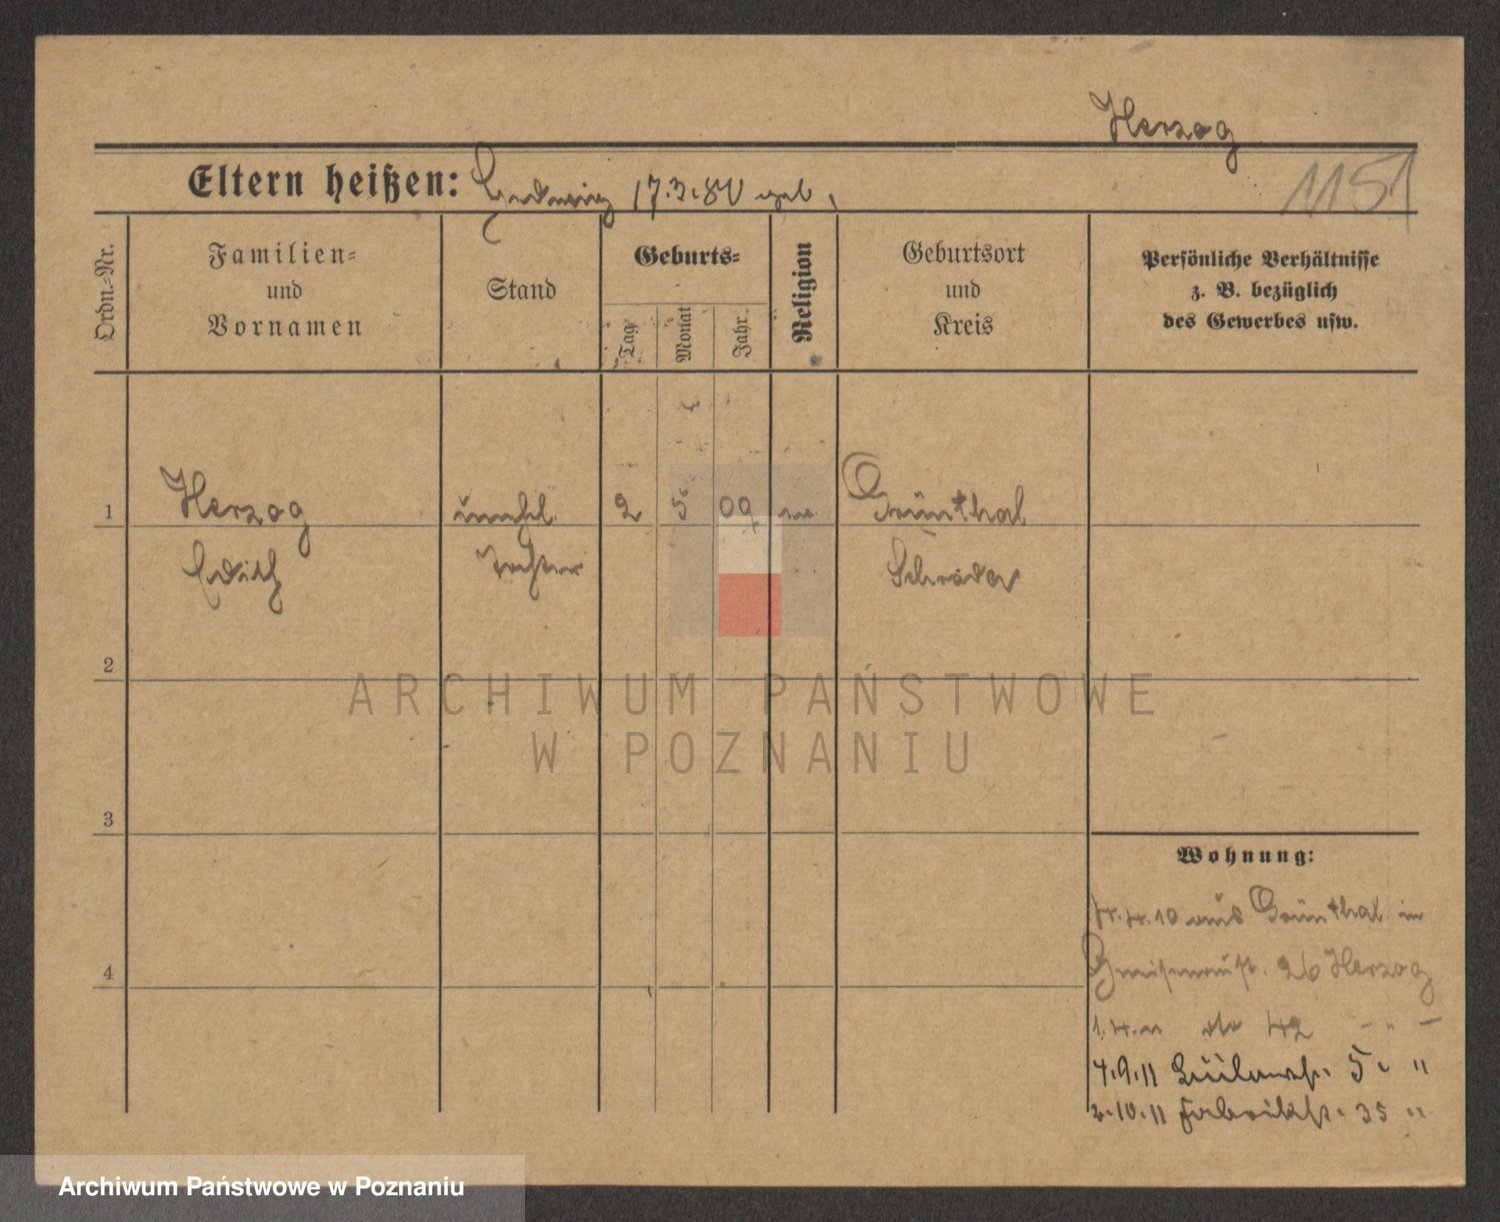 Herzog
Eltern heißen: Hedwig 17.3.80 geb.
1151
Ordn.-Nr.
Familien-
und
Vornamen
Stand
Geburts-
Tag
Monat
Jahr.
Religion
Geburtsort
und
Kreis
Persönliche Verhältnisse
z. B. bezüglich
des Gewerbes usw.
1 Herzog unehl. 2 5 09 Grünthal
Edith Tochter Schroda
2
3
4
Wohnung:
4.4.10 aus Grünthal in
Gneisenaust. 26 Herzog
1.4.11 42 - " -
4.9.11 5. "
2.10.11 Fabrikst. 35 "
ARCHIWUM PAŃSTWOWE
W POZNANIU
Archiwum Państwowe w Poznaniu